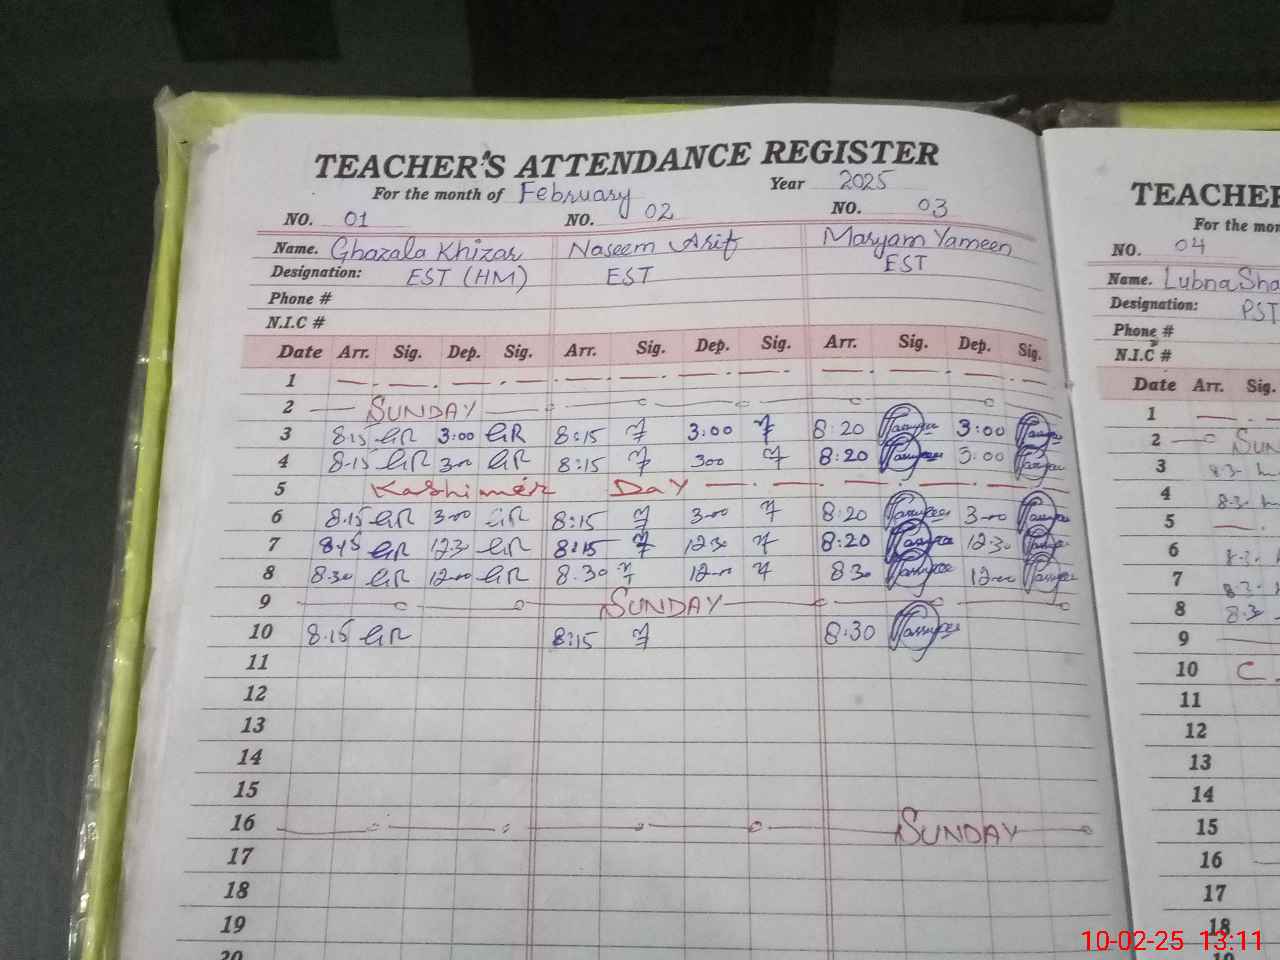 TEACHER'S ATTENDANCE REGISTER
For the month of February Year 2025
NO. 01 NO. 02 NO. 03
Name. Ghazala Khizar Naseem Arif Maryam Yameen
Designation: EST (HM) EST EST
Phone #
N.I.C #
Date Arr. Sig. Dep. Sig. Arr. Sig. Dep. Sig. Arr. Sig. Dep. Sig.
1
2 SUNDAY
3 8.15 GR 3:00 GR 8:15 3:00 8:20 3:00
4 8.15 GR 300 GR 8:15 300 8:20 3:00
5 Kashimér DAY
6 8.15 GR 3-00 GR 8:15 3-00 8:20 3-00
7 8:15 GR 12.30 GR 8:15 12.30 8:20 12.30
8 8.30 GR 12-00 GR 8.30 12-00 8.30 12-00
9 SUNDAY
10 8.15 GR 8:15 8:30
11
12
13
14
15
16 SUNDAY
17
18
19
20
TEACHER
For the mon
NO. 04
Name. Lubna Sha
Designation: PST
Phone #
N.I.C #
Date Arr. Sig.
1
2 SUN
3 8.3-
4 8.3-
5
6 8.3-
7 8.3-
8 8.3
9
10 C.
11
12
13
14
15
16
17
18
19
10-02-25 13:11